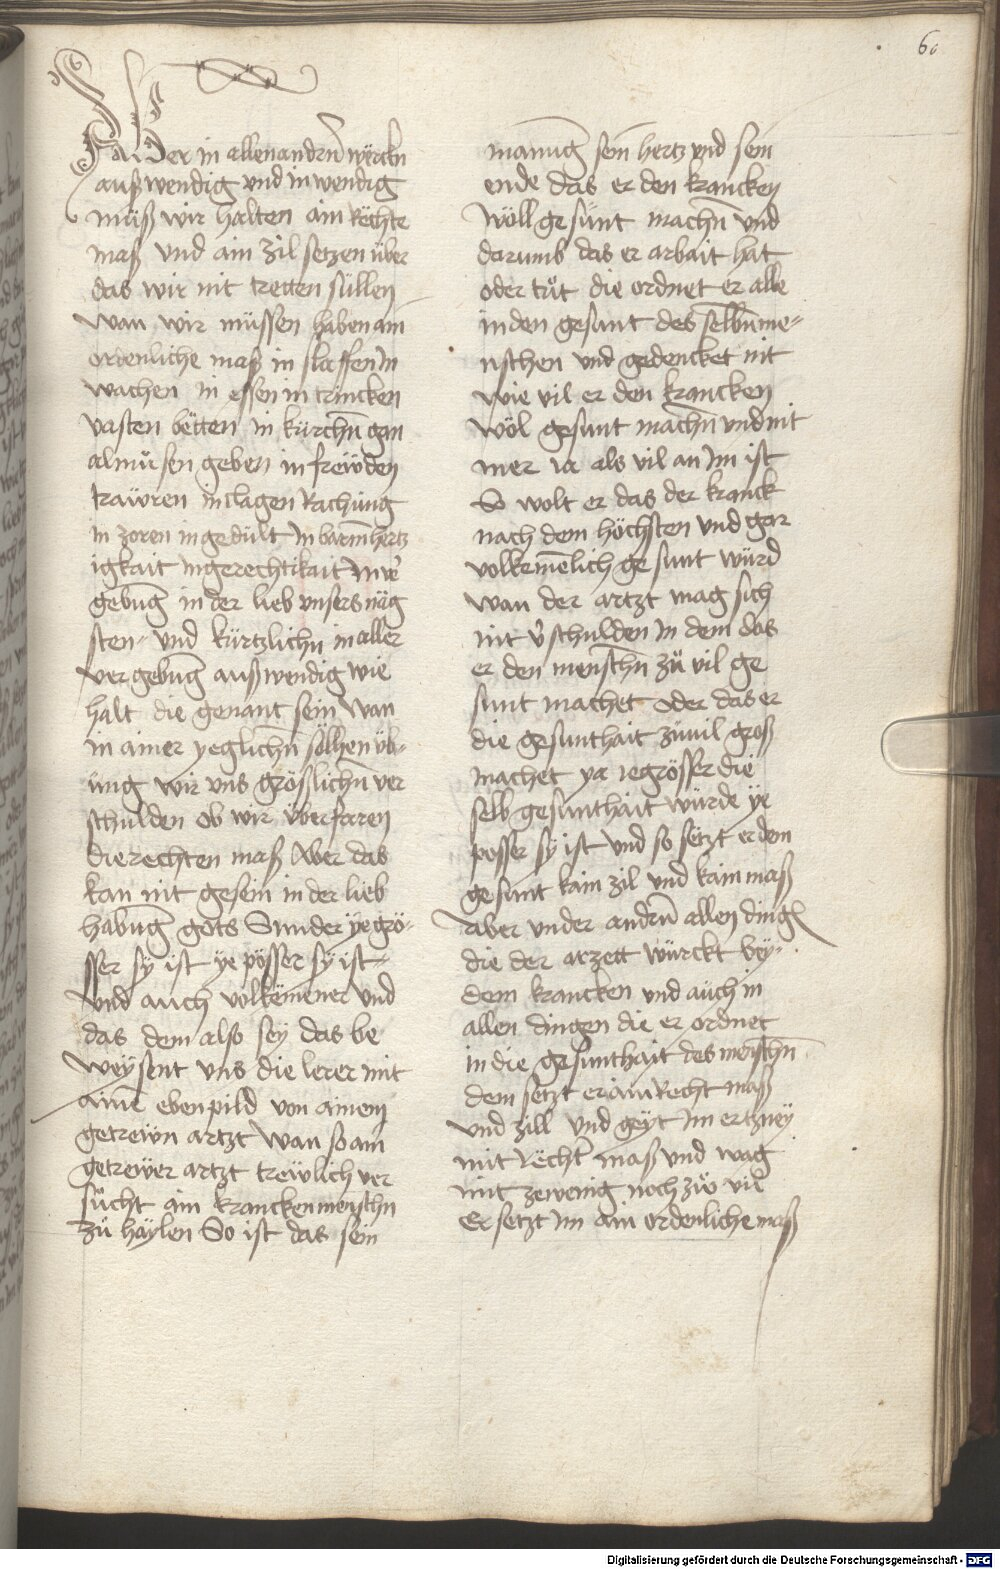 60
Sunder in allen andrñ wërckn
außwendig vnd inwendig
müß wir halten ain Rëchte
maß vnd ain zil setzen über
das wir nit tretten süllen
wan wir müssen haben ain
ordenliche maß in slaffen in
wachen in essen in trincken
vasten bëtten in kürchn̄ gan
almüsen geben in frewden
trawren in clagen Rachung
in zoren in gedült in barm̄hertz
igkait in gerechtikait in v̓
gebung in der lieb vnsers näg
sten vnd kürtzlichn in aller
vergebūg außwendig wie
halt die genant sein wan
in ainer yeglichn̄ solhen üb-
ung wir vns grösslichn̄ ver
schulden ob wir überfaren
die rechten maß Aber das
kan nit gesein in der lieb
habūg gots Sunder ÿe grö-
sser sÿ ist ye pösser sÿ ist
vnd auch volkem̄ener vnd
das dem also seÿ das be
weÿsent vns die lerer mit
ainē ebenpild von ainem
getrewn artzt wan so ain
getrewer artzt trewlich ver
sücht ain krancken menschn
zü haÿlen So ist das sein
mainūg sein hertz vnd sein
ende das er den krancken
wöll gesunt machn̄ vnd
darumb das er arbait hat
oder tüt die ordnet er alle
in den gesunt des selbn̄ me-
nschen vnd gedencket nit
wie vil er den krancken
wöl gesunt machn̄ vnd nit
mer ia als vil an im ist
So wolt er das der kranck
nach dem höchsten vnd gar
volkem̄enlich gesunt würd
wan der artzt mag sich
nit v̓schulden in dem das
er den menschn̄ zü vil ge
sunt machet oder das er
die gesunthait züuil groß
machet ya ie grösser die
selb gesunthait würde ÿe
posser sÿ ist vnd so setzt er dem
gesunt kain zil vnd kain maß
Aber vnder andrñ allen dingn̄
die der artzett würckt beÿ
dem krancken vnd auch in
allen dingen die er ordnet
in die gesunthait des menschn̄
dem setzt er ain Recht maß
vnd zill vnd geyt im ertzneÿ
mit rëcht̓ mass vnd wag
nit ze wenig noch zü vil
Er setzt im ain ordenliche maß
Digitalisierung gefördert durch die Deutsche Forschungsgemeinschaft - DFG